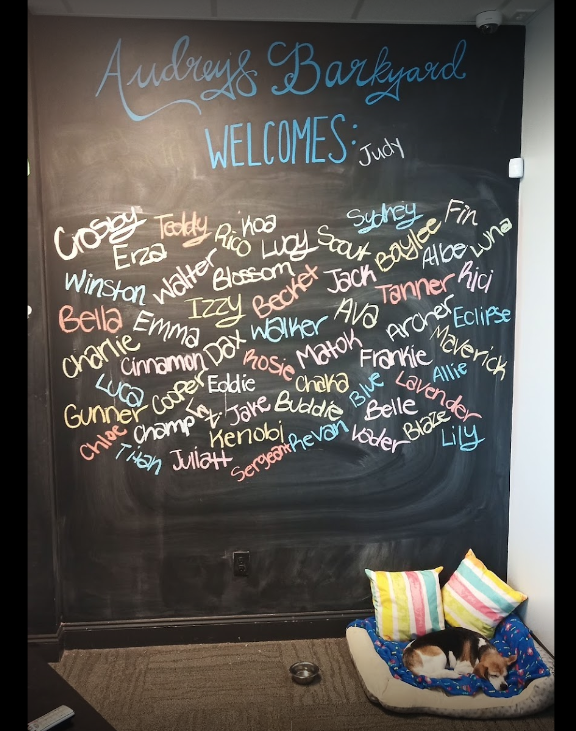 Audrey's Barkyard
WELCOMES: Judy
Crosby Teddy Koa Sydney Fin
Erza Rico Lucy Scout Baylee Albe Luna
Winston Walter Blossom Becket Jack Tanner Rici
Bella Emma Izzy Walker Ava Archer Eclipse
Charlie Cinnamon Dax Rosie Matok Frankie Maverick
Luca Cooper Eddie Chaka Blue Lavender Allie
Gunner Champ Jake Buddie Belle Blaze
Chloe Kenobi Revan Vader Lily
Titan Juliatt Sergeant